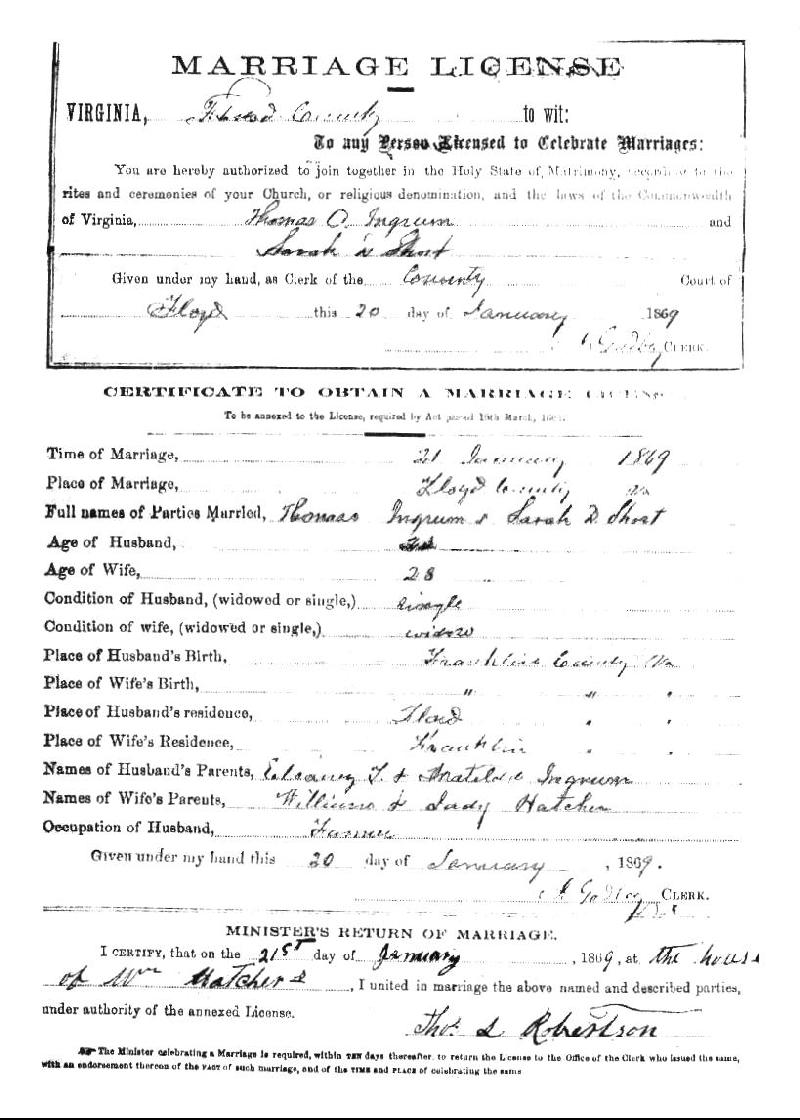 MARRIAGE LICENSE
VIRGINIA, Floyd County to wit:
To any Person Licensed to Celebrate Marriages:
You are hereby authorized to join together in the Holy State of Matrimony, according to the
rites and ceremonies of your Church, or religious denomination, and the laws of the Commonwealth
of Virginia, Thomas O. Ingrum and
Sarah D Short
Given under my hand, as Clerk of the County Court of
Floyd this 20 day of January 1869
Godbey CLERK.
CERTIFICATE TO OBTAIN A MARRIAGE LICENSE
To be annexed to the License, required by Act passed 15th March,
Time of Marriage, 21 January 1869
Place of Marriage, Floyd County Va
Full names of Parties Married, Thomas Ingrum & Sarah D. Short
Age of Husband,
Age of Wife, 28
Condition of Husband, (widowed or single,) single
Condition of wife, (widowed or single,) widow
Place of Husband's Birth, Franklin County Va
Place of Wife's Birth, " " "
Place of Husband's residence, Floyd " "
Place of Wife's Residence, Franklin " "
Names of Husband's Parents, T. & Matilda Ingrum
Names of Wife's Parents, William & Judy Hatcher
Occupation of Husband, Farmer
Given under my hand this 20 day of January, 1869.
Godbey CLERK.
MINISTER'S RETURN OF MARRIAGE.
I CERTIFY, that on the 21ST day of January, 1869, at the house
of Wm Hatchers, I united in marriage the above named and described parties,
under authority of the annexed License.
Thos. L Robertson
The Minister celebrating a Marriage is required, within TEN days thereafter, to return the License to the Office of the Clerk who issued the same,
with an endorsement thereon of the FACT of such marriage, and of the TIME and PLACE of celebrating the same